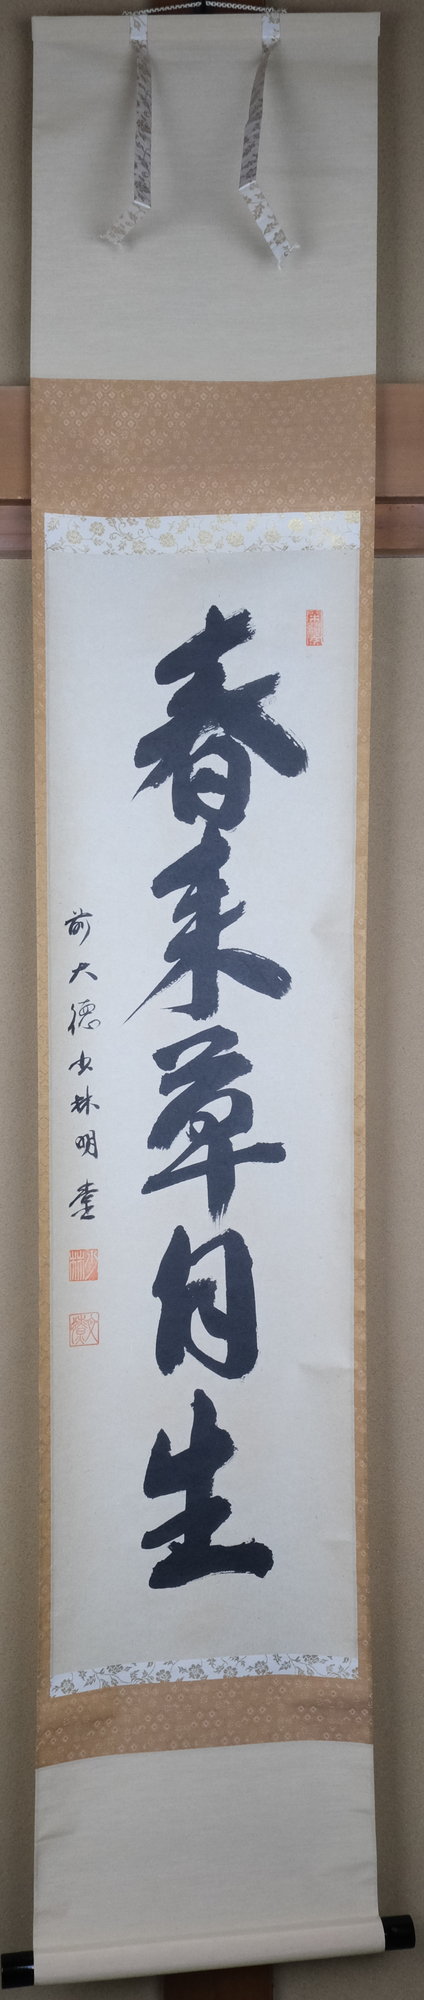 春来草自生
前大徳少林明堂